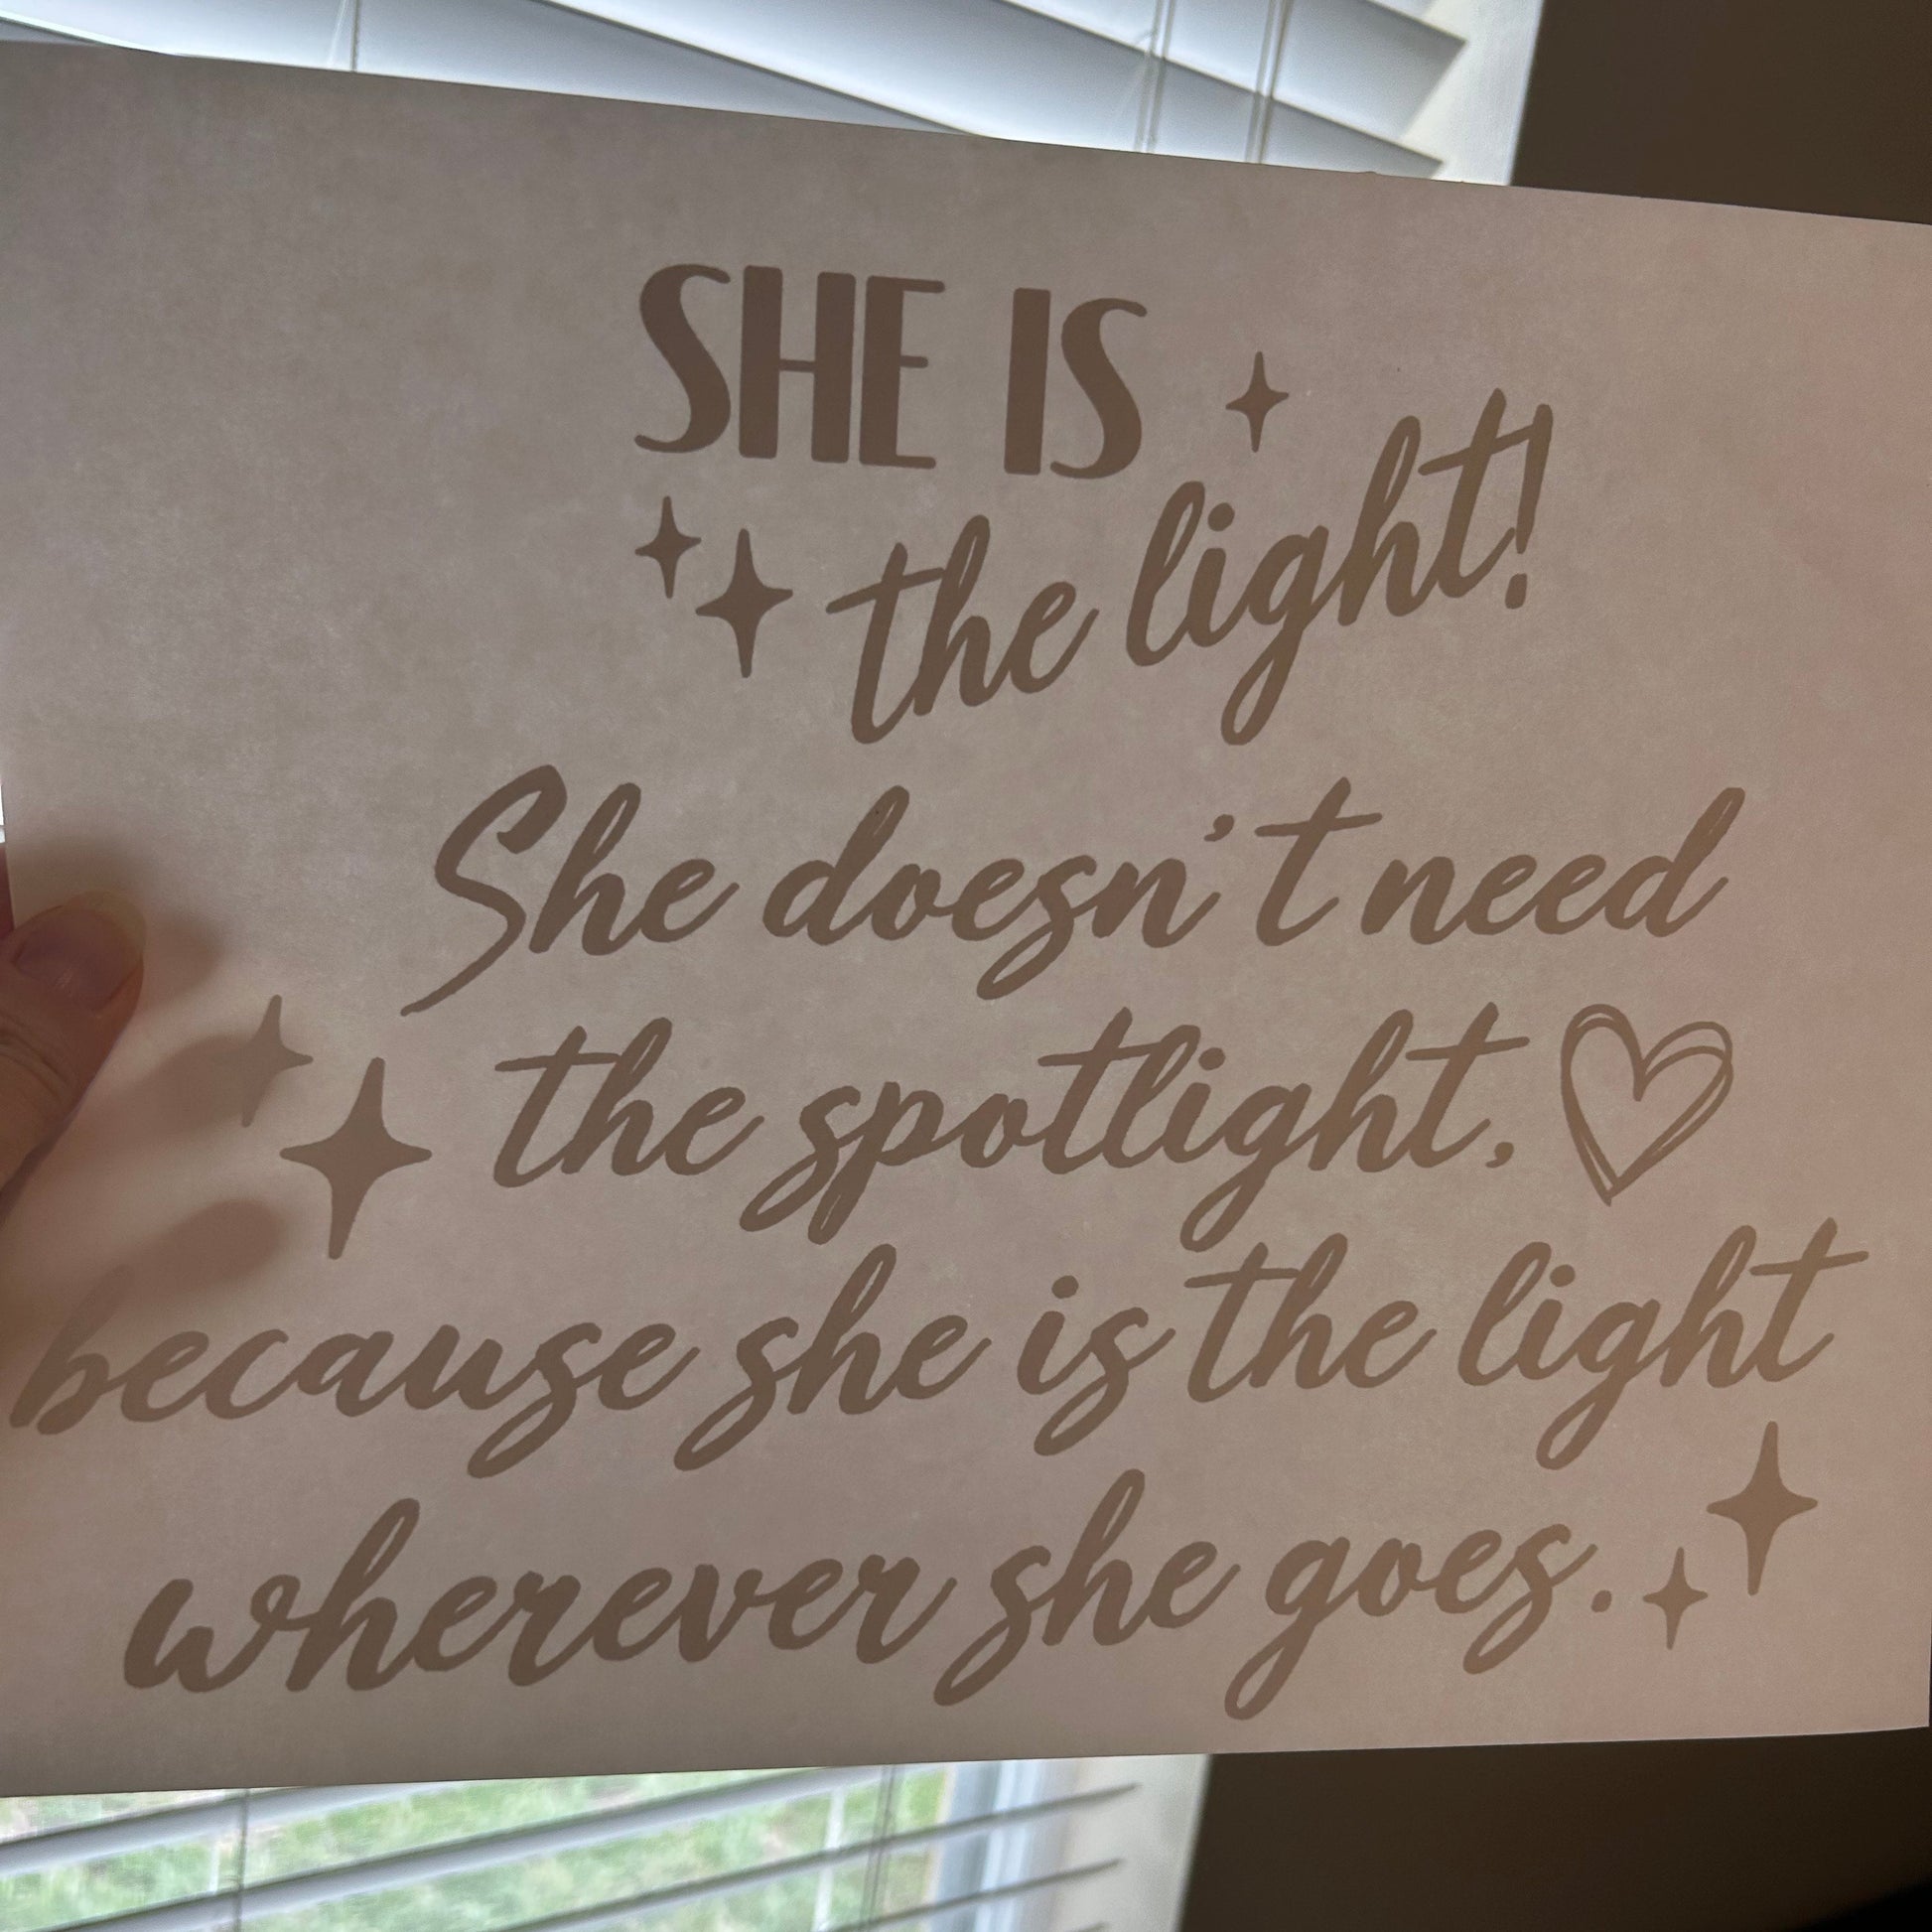 SHE IS
the light!
She doesn't need
the spotlight,
because she is the light
wherever she goes.